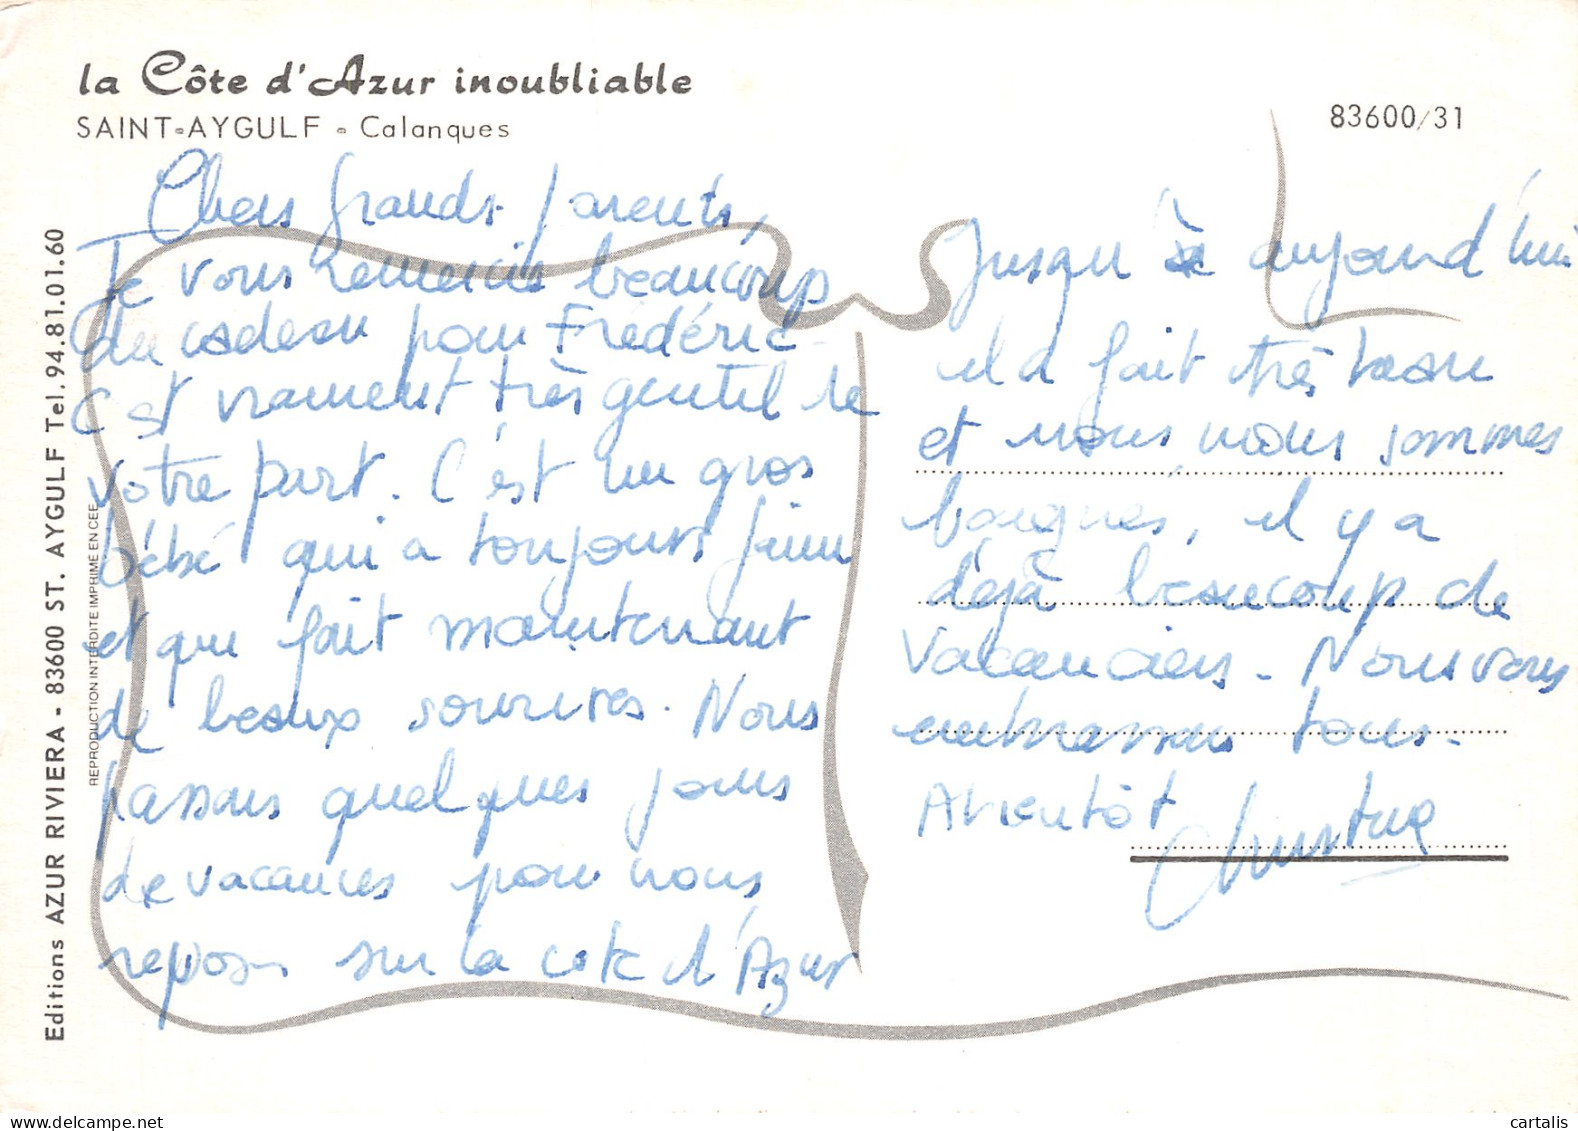 la Côte d'Azur inoubliable
SAINT-AYGULF - Calanques
83600/31
Chers grands-parents,
Je vous remercie beaucoup
du cadeau pour Frédéric
C'est vraiment très gentil de
votre part. C'est un gros
bébé qui a toujours faim
et qui fait maintenant
de beaux sourires. Nous
passons quelques jours
de vacances pour nous
reposer sur la côte d'Azur
Jusqu'à aujourd'hui
il a fait très beau
et nous, nous sommes
baignés, il y a
déjà beaucoup de
vacanciers. Nous vous
embrassons tous.
A bientôt
Christine
Editions AZUR RIVIERA - 83600 ST. AYGULF Tel. 94.81.01.60
REPRODUCTION INTERDITE IMPRIME EN CEE
www.delcampe.net
cartalis